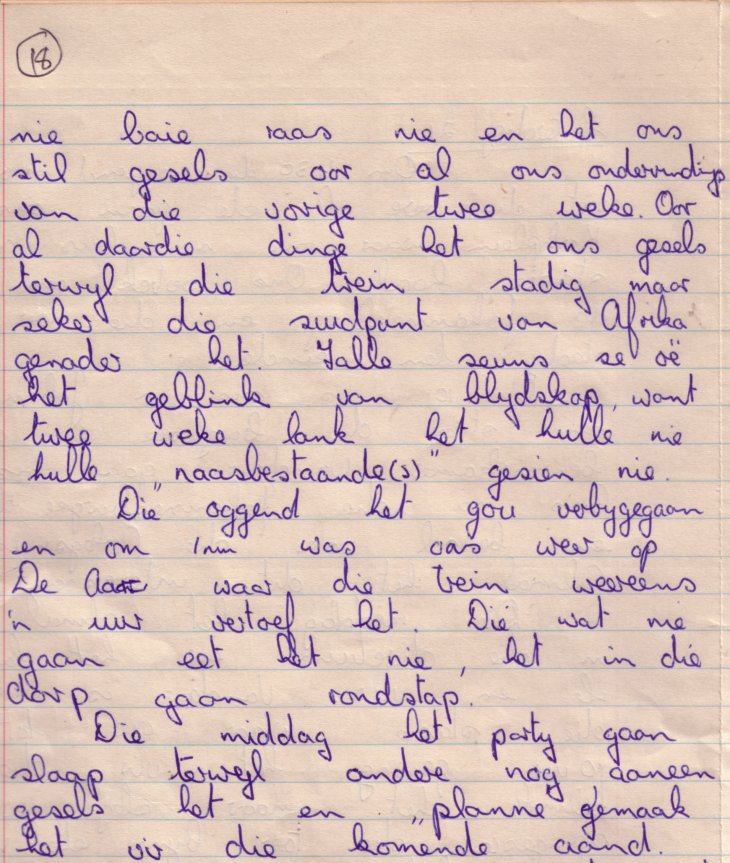 18
nie baie raas nie en het ons
stil gesels oor al ons ondervindings
van die vorige twee weke. Oor
al daardie dinge het ons gesels
terwyl die trein stadig maar
seker die suidpunt van Afrika
genader het. Jalle seuns se oë
het geblink van blydskap, want
twee weke lank het hulle nie
hulle „naasbestaande(s)” gesien nie.
Die oggend het gou verbygegaan
en om 1nm was ons weer op
De Aar waar die trein weereens
'n uur vertoef het. Dié wat nie
gaan eet het nie, het in die
dorp gaan rondstap.
Die middag het party gaan
slaap terwyl andere nog aaneen
gesels het en „planne” gemaak
het vir die komende aand.